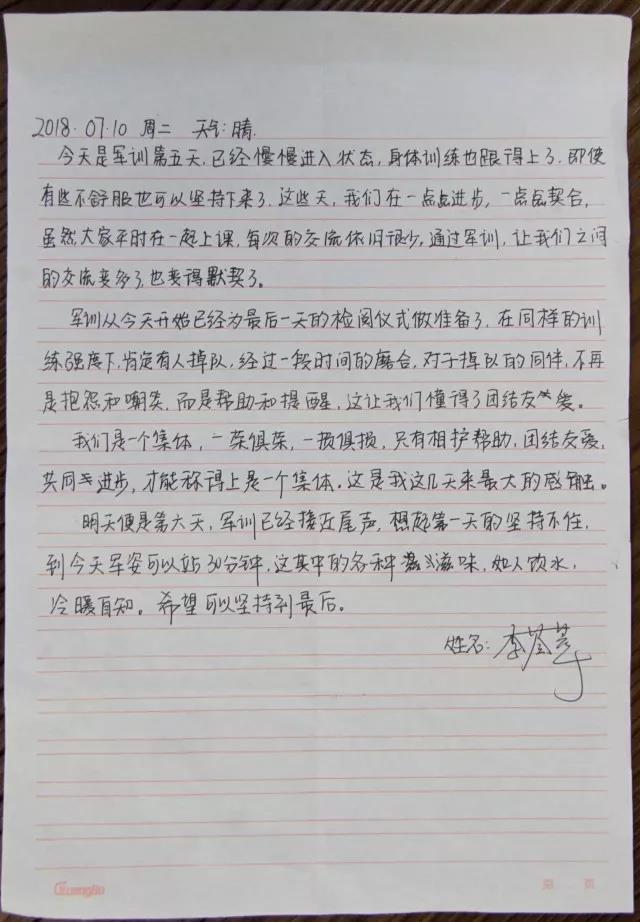 2018.07.10 周二 天气:晴.
今天是军训第五天,已经慢慢进入状态,身体训练也跟得上了.即使
有些不舒服也可以坚持下来了.这些天,我们在一点点进步,一点点契合,
虽然大家平时在一起上课,每次的交流依旧很少,通过军训,让我们之间
的交流变多了,也变得默契了。
军训从今天开始已经为最后一天的检阅仪式做准备了.在同样的训
练强度下,肯定有人掉队,经过一段时间的磨合,对于掉队的同伴,不再
是抱怨和嘲笑,而是帮助和提醒,这让我们懂得了团结友爱。
我们是一个集体,一荣俱荣,一损俱损,只有相护帮助,团结友爱,
共同进步,才能称得上是一个集体.这是我这几天来最大的感触。
明天便是第六天,军训已经接近尾声,想起第一天的坚持不住,
到今天军姿可以站30分钟,这其中的各种滋味,如人饮水,
冷暖自知。希望可以坚持到最后。
姓名:李
Guangbo
第 页